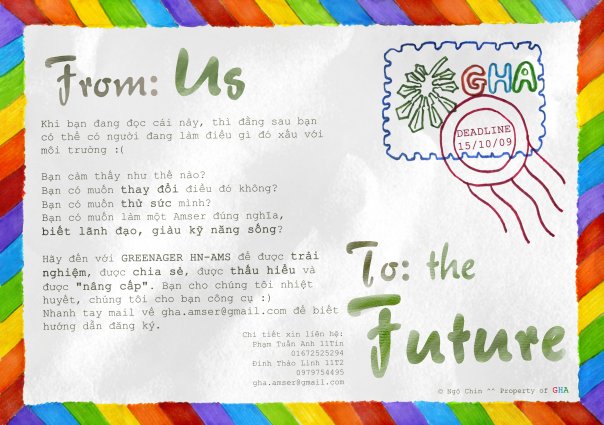 From: Us
Khi bạn đang đọc cái này, thì đằng sau bạn
có thể có người đang làm điều gì đó xấu với
môi trường :(
Bạn cảm thấy như thế nào?
Bạn có muốn thay đổi điều đó không?
Bạn có muốn thử sức mình?
Bạn có muốn làm một Amser đúng nghĩa,
biết lãnh đạo, giàu kỹ năng sống?
Hãy đến với GREENAGER HN-AMS để được trải
nghiệm, được chia sẻ, được thấu hiểu và
được "nâng cấp". Bạn cho chúng tôi nhiệt
huyết, chúng tôi cho bạn công cụ :)
Nhanh tay mail về gha.amser@gmail.com để biết
hướng dẫn đăng ký.
Chi tiết xin liên hệ:
Phạm Tuấn Anh 11Tin
01672525294
Đinh Thảo Linh 11T2
0979754495
gha.amser@gmail.com
GHA
DEADLINE
15/10/09
To: the
Future
© Ngố Chin ^^ Property of GHA